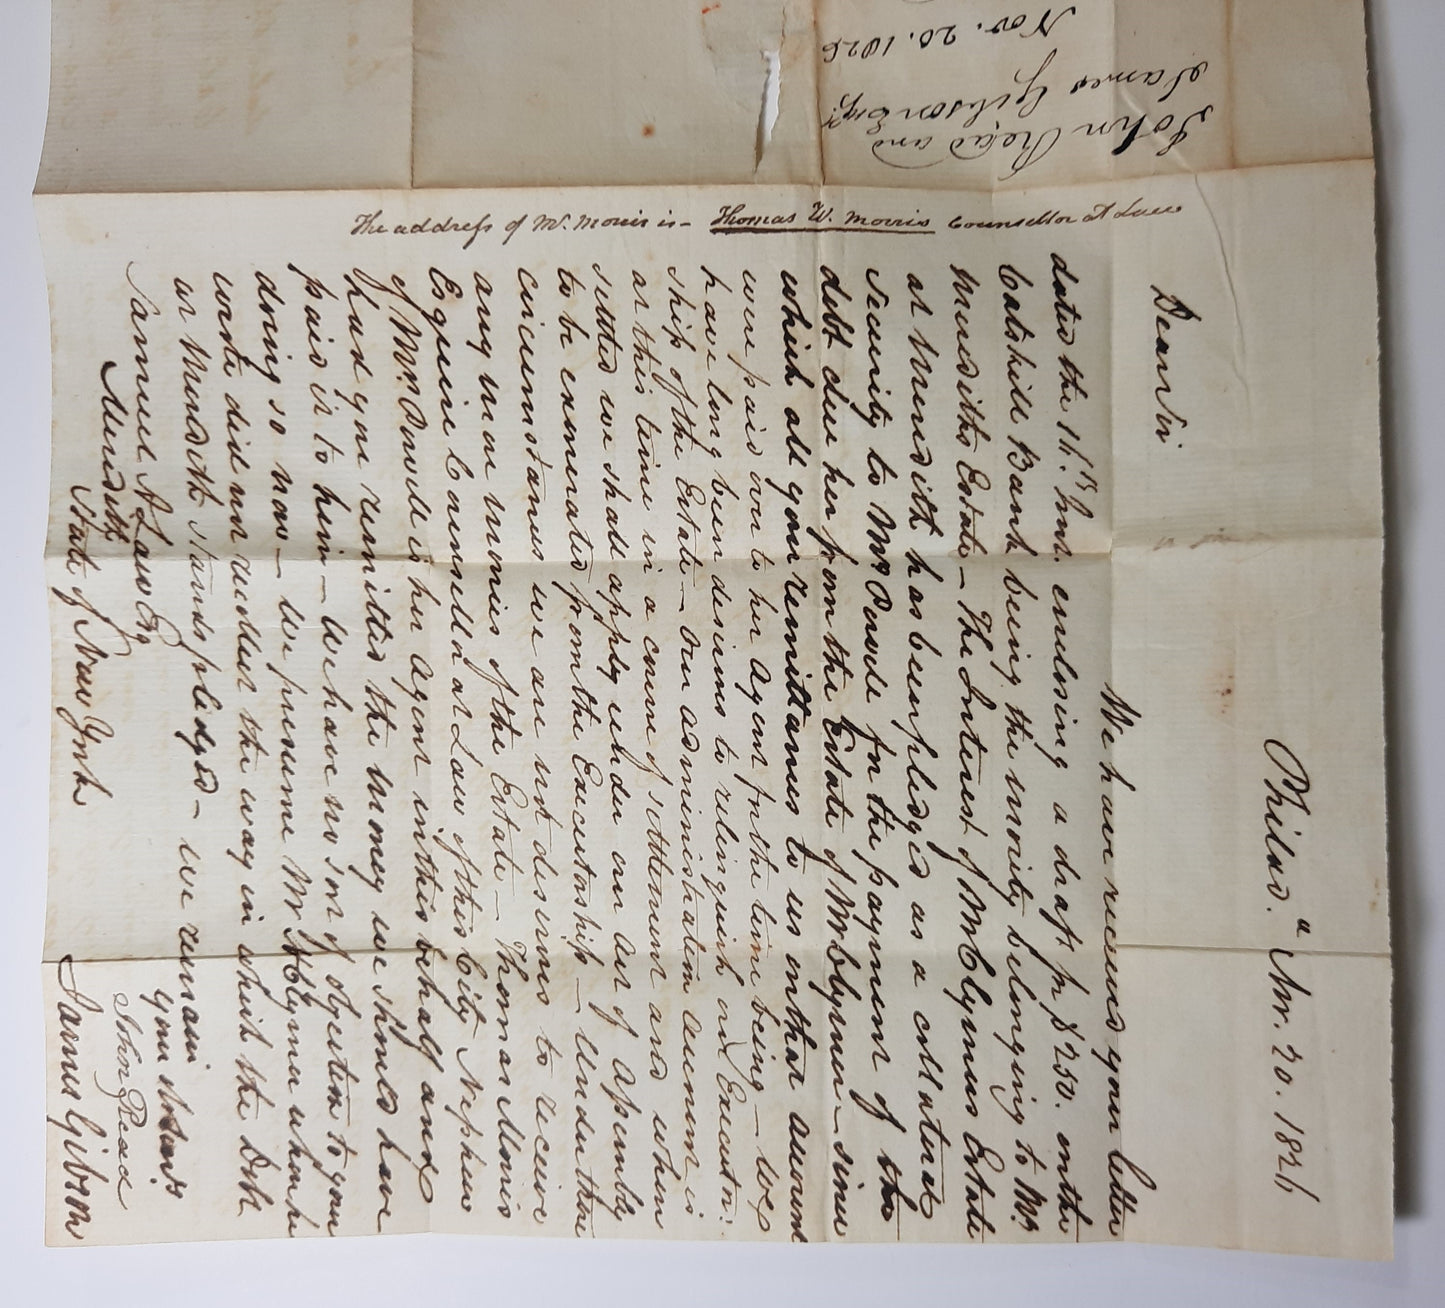 Philad.ª Nov. 20. 1826
Dear Sir
We have received your letter
dated the 14.th Inst. enclosing a draft for $250. on the
Catskill Bank being the moiety belonging to Mr
Merediths Estate — The Interest of Mr Clymers Estate
at Meredith has been pledged as a collateral
security to Mrs Powele for the payment of the
debt due her from the Estate of Mr Clymer — since
which all your remittances to us on that account
were paid over to her Agent for the time being — We
have long been desirous to relinquish our Executor:
ship of the Estate — Our administration account is
at this time in a course of settlement and when
settled we shall apply under our Act of Assembly
to be exonerated from the Executorship — Under these
circumstances we are not desirous to receive
any more monies of the Estate — Thomas Morris
Esquire Counsellor at Law of this City Nephew
of Mrs Powele is her agent in this behalf and
had you remitted the money we should have
paid it to him — We have no sort of objection to your
doing so now — We presume Mr H Clymer when he
wrote did not recollect the way in which the Debt
at Meredith stands pledged — we remain
your
Samuel A Law Esq
Meredith
State of New York
John Read
James Gibson
The address of Mr. Morris is — Thomas W. Morris Counsellor at Law
John Read and
James Gibson Esqr.
Nov. 20. 1826